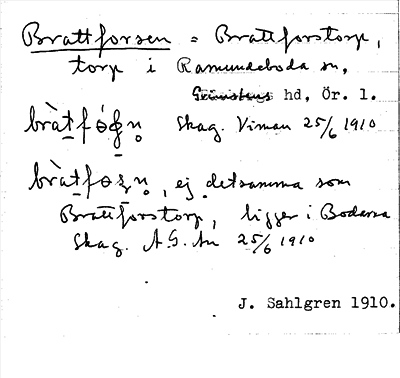 Brattforsen = Brattforstorp,
torp i Ramundeboda sn,
Grimstens hd, Ör. l.
Skag. Viman 25/6 1910
, ej detsamma som
Brattforstorp, ligger i Bodarna
Skag. A.G. An 25/6 1910
J. Sahlgren 1910.